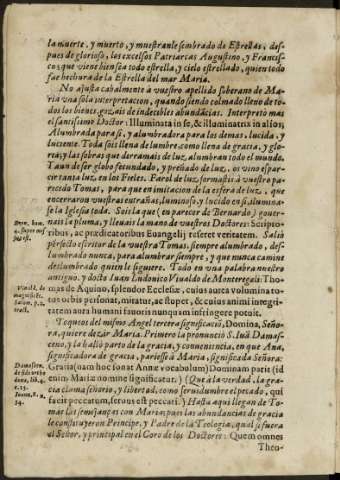 la muerte, y muerto, y muestranle sembrado de Estrellas, des-
pues de glorioso, los excelsos Patriarcas Augustino, y Francis-
co: que viene bien sea todo estrella, y cielo estrellado, quien todo
fue hechura de la Estrella del mar Maria.
No ajusta cabalmente à vuestro apellido soberano de Ma-
ria vna sola interpretacion, quando siendo colmado lleno de to-
dos los bienes, gozais de indecibles abundãcias. Interpretò mas
el santissimo Doctor: Illuminata in se, & illuminatrix in alios;
Alumbrada para si, y alumbradora para los demas, lucida, y
luciente. Toda sois llena de lumbre como llena de gracia, y glo-
ria; y las sobras que derramais de luz, alumbran todo el mundo.
Y aun de ser globo fecundado, y preñado de luz, os vino espar-
cir tanta luz, en los Fieles. Farol de luz, formastis à vuestro pa-
recido Tomas, para que en imitacion de la esfera de luz, que
encerraron vuestras entrañas, luminoso, y lucido en si, ilumina-
se la Iglesia toda. Sois la que (en parecer de Bernardo) gouer-
nais la pluma, y lleuais la mano de vuestros Doctores: Scripto-
ribus, ac prædicatoribus Euangelij referet veritatem. Saliò
perfecto escritor de la vuestra Tomas, siempre alumbrado, des-
lumbrado nunca, para alumbrar siempre, y que nunca camine
deslumbrado quien le siguiere. Todo en vna palabra nuestro
antiguo, y docto Iuan Ludonico Viualdo de Monteregali: Tho-
mas de Aquino, splendor Ecclesiæ, cuius aurea volumina to-
tus orbis personat, miratur, ac stupet, & cuius animi integri-
tatem aura humani fauoris nunquam infringere potuit.
Toquèos del mismo Angel tercera significaciõ, Domina, Seño-
ra, quiere dezir Maria. Primero la pronunciò S. Iuã Damas-
ceno, y la hallò parto de la gracia, y conueniencia, en que Ana,
significadora de gracia, pariesse à Maria, significada Señora:
Gratia (nam hoc sonat Annæ vocabulum) Dominam parit (id
enim Mariæ nomine significatur.) (Que a la verdad, la gra-
cia clama señorio, y libertad, como seruidumbre el pecado, qui
facit peccatum, seruus est peccati.) Hasta aqui llegan de To-
mas las semejanças con Maria; pues las abundancias de gracia
le constituyeron Principe, y Padre de la Teologia, qual si fuera
el Señor, y principal en el Coro de los Doctores: Quem omnes
Theo-
Bern. hom.
4. super mis
sus est.
tract.
Damascen.
de fide ortho
doxa, lib. 4.
c. 15.
Ioann. 8. v.
34.